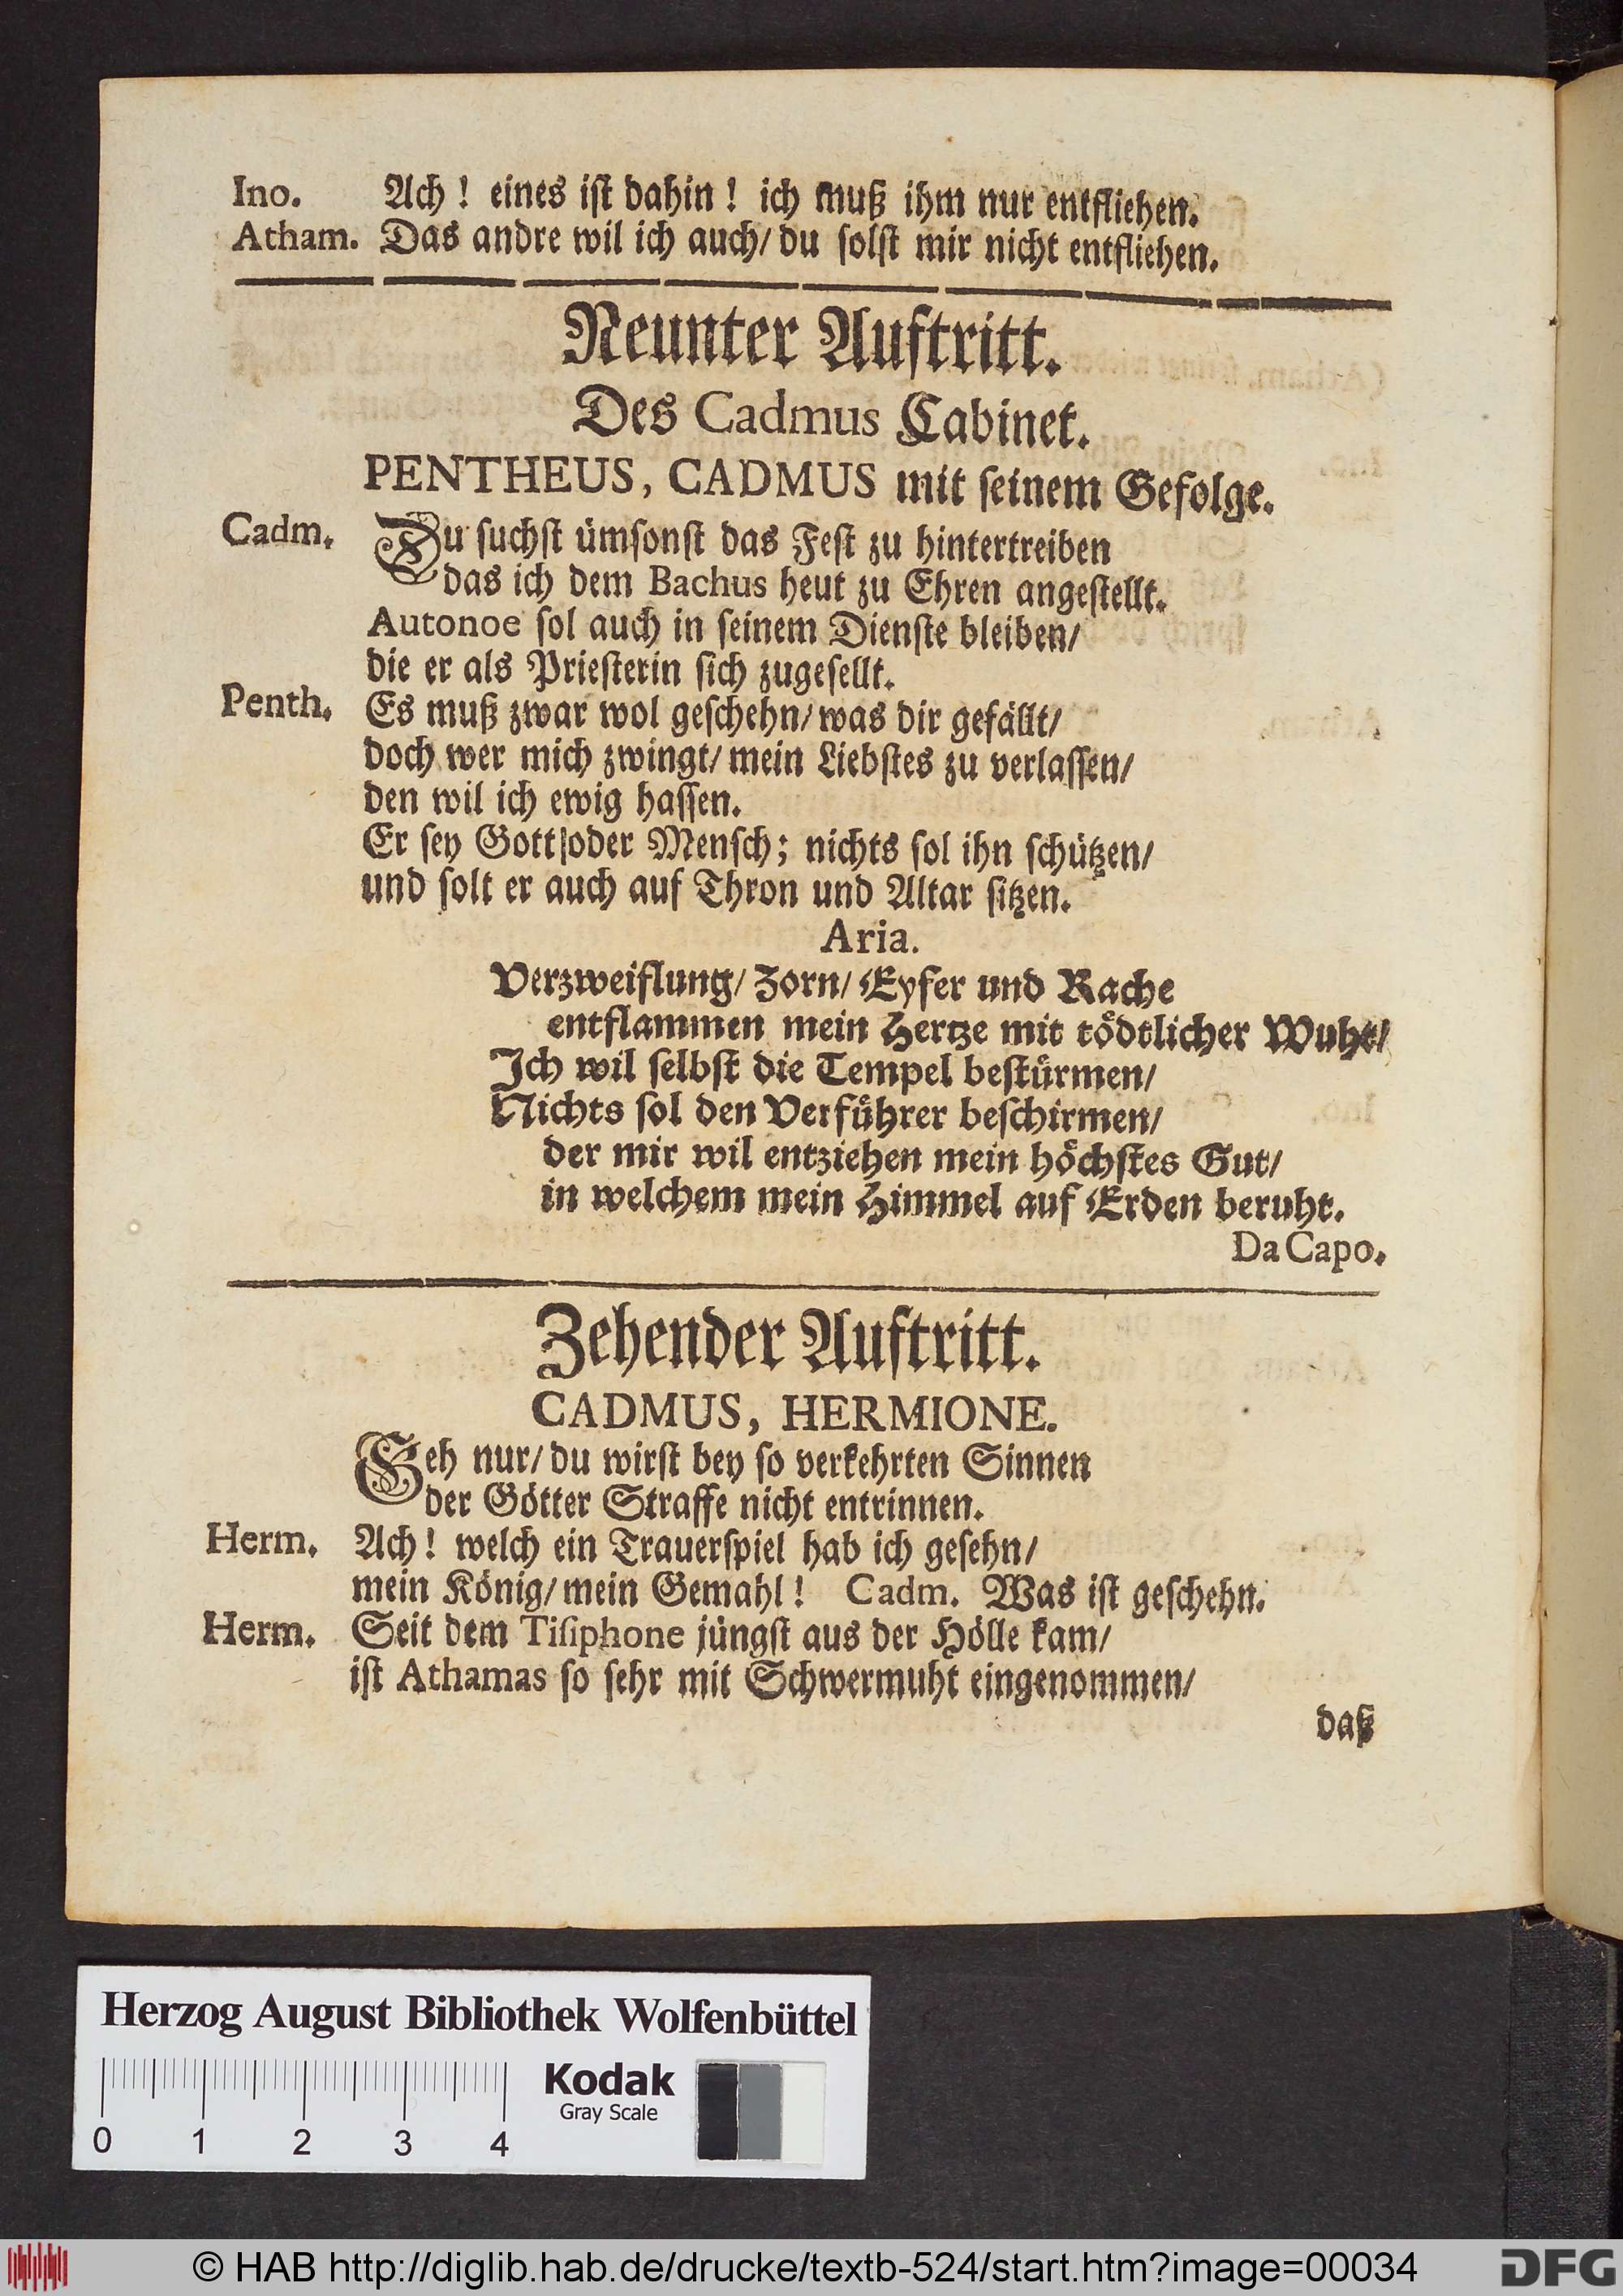 Ino. Ach! eines ist dahin! ich muß ihm nur entfliehen.
Atham. Das andre wil ich auch/ du solst mir nicht entfliehen.
Neunter Auftritt.
Des Cadmus Cabinet.
PENTHEUS, CADMUS mit seinem Gefolge.
Cadm. Du suchst ümsonst das Fest zu hintertreiben
das ich dem Bachus heut zu Ehren angestellt.
Autonoe sol auch in seinem Dienste bleiben/
die er als Priesterin sich zugesellt.
Penth. Es muß zwar wol geschehn/ was dir gefällt/
doch wer mich zwingt/ mein Liebstes zu verlassen/
den wil ich ewig hassen.
Er sey Gott/oder Mensch; nichts sol ihn schützen/
und solt er auch auf Thron und Altar sitzen.
Aria.
Verzweiflung/ Zorn/ Eyfer und Rache
entflammen mein Hertze mit tödtlicher Wuht/
Ich wil selbst die Tempel bestürmen/
Nichts sol den Verführer beschirmen/
der mir wil entziehen mein höchstes Gut/
in welchem mein Himmel auf Erden beruht.
Da Capo.
Zehender Auftritt.
CADMUS, HERMIONE.
Geh nur/ du wirst bey so verkehrten Sinnen
der Götter Straffe nicht entrinnen.
Herm. Ach! welch ein Trauerspiel hab ich gesehn/
mein König/ mein Gemahl! Cadm. Was ist geschehn.
Herm. Seit dem Tisiphone jüngst aus der Hölle kam/
ist Athamas so sehr mit Schwermuht eingenommen/
daß
Herzog August Bibliothek Wolfenbüttel
Kodak
Gray Scale
0 1 2 3 4
© HAB http://diglib.hab.de/drucke/textb-524/start.htm?image=00034
DFG